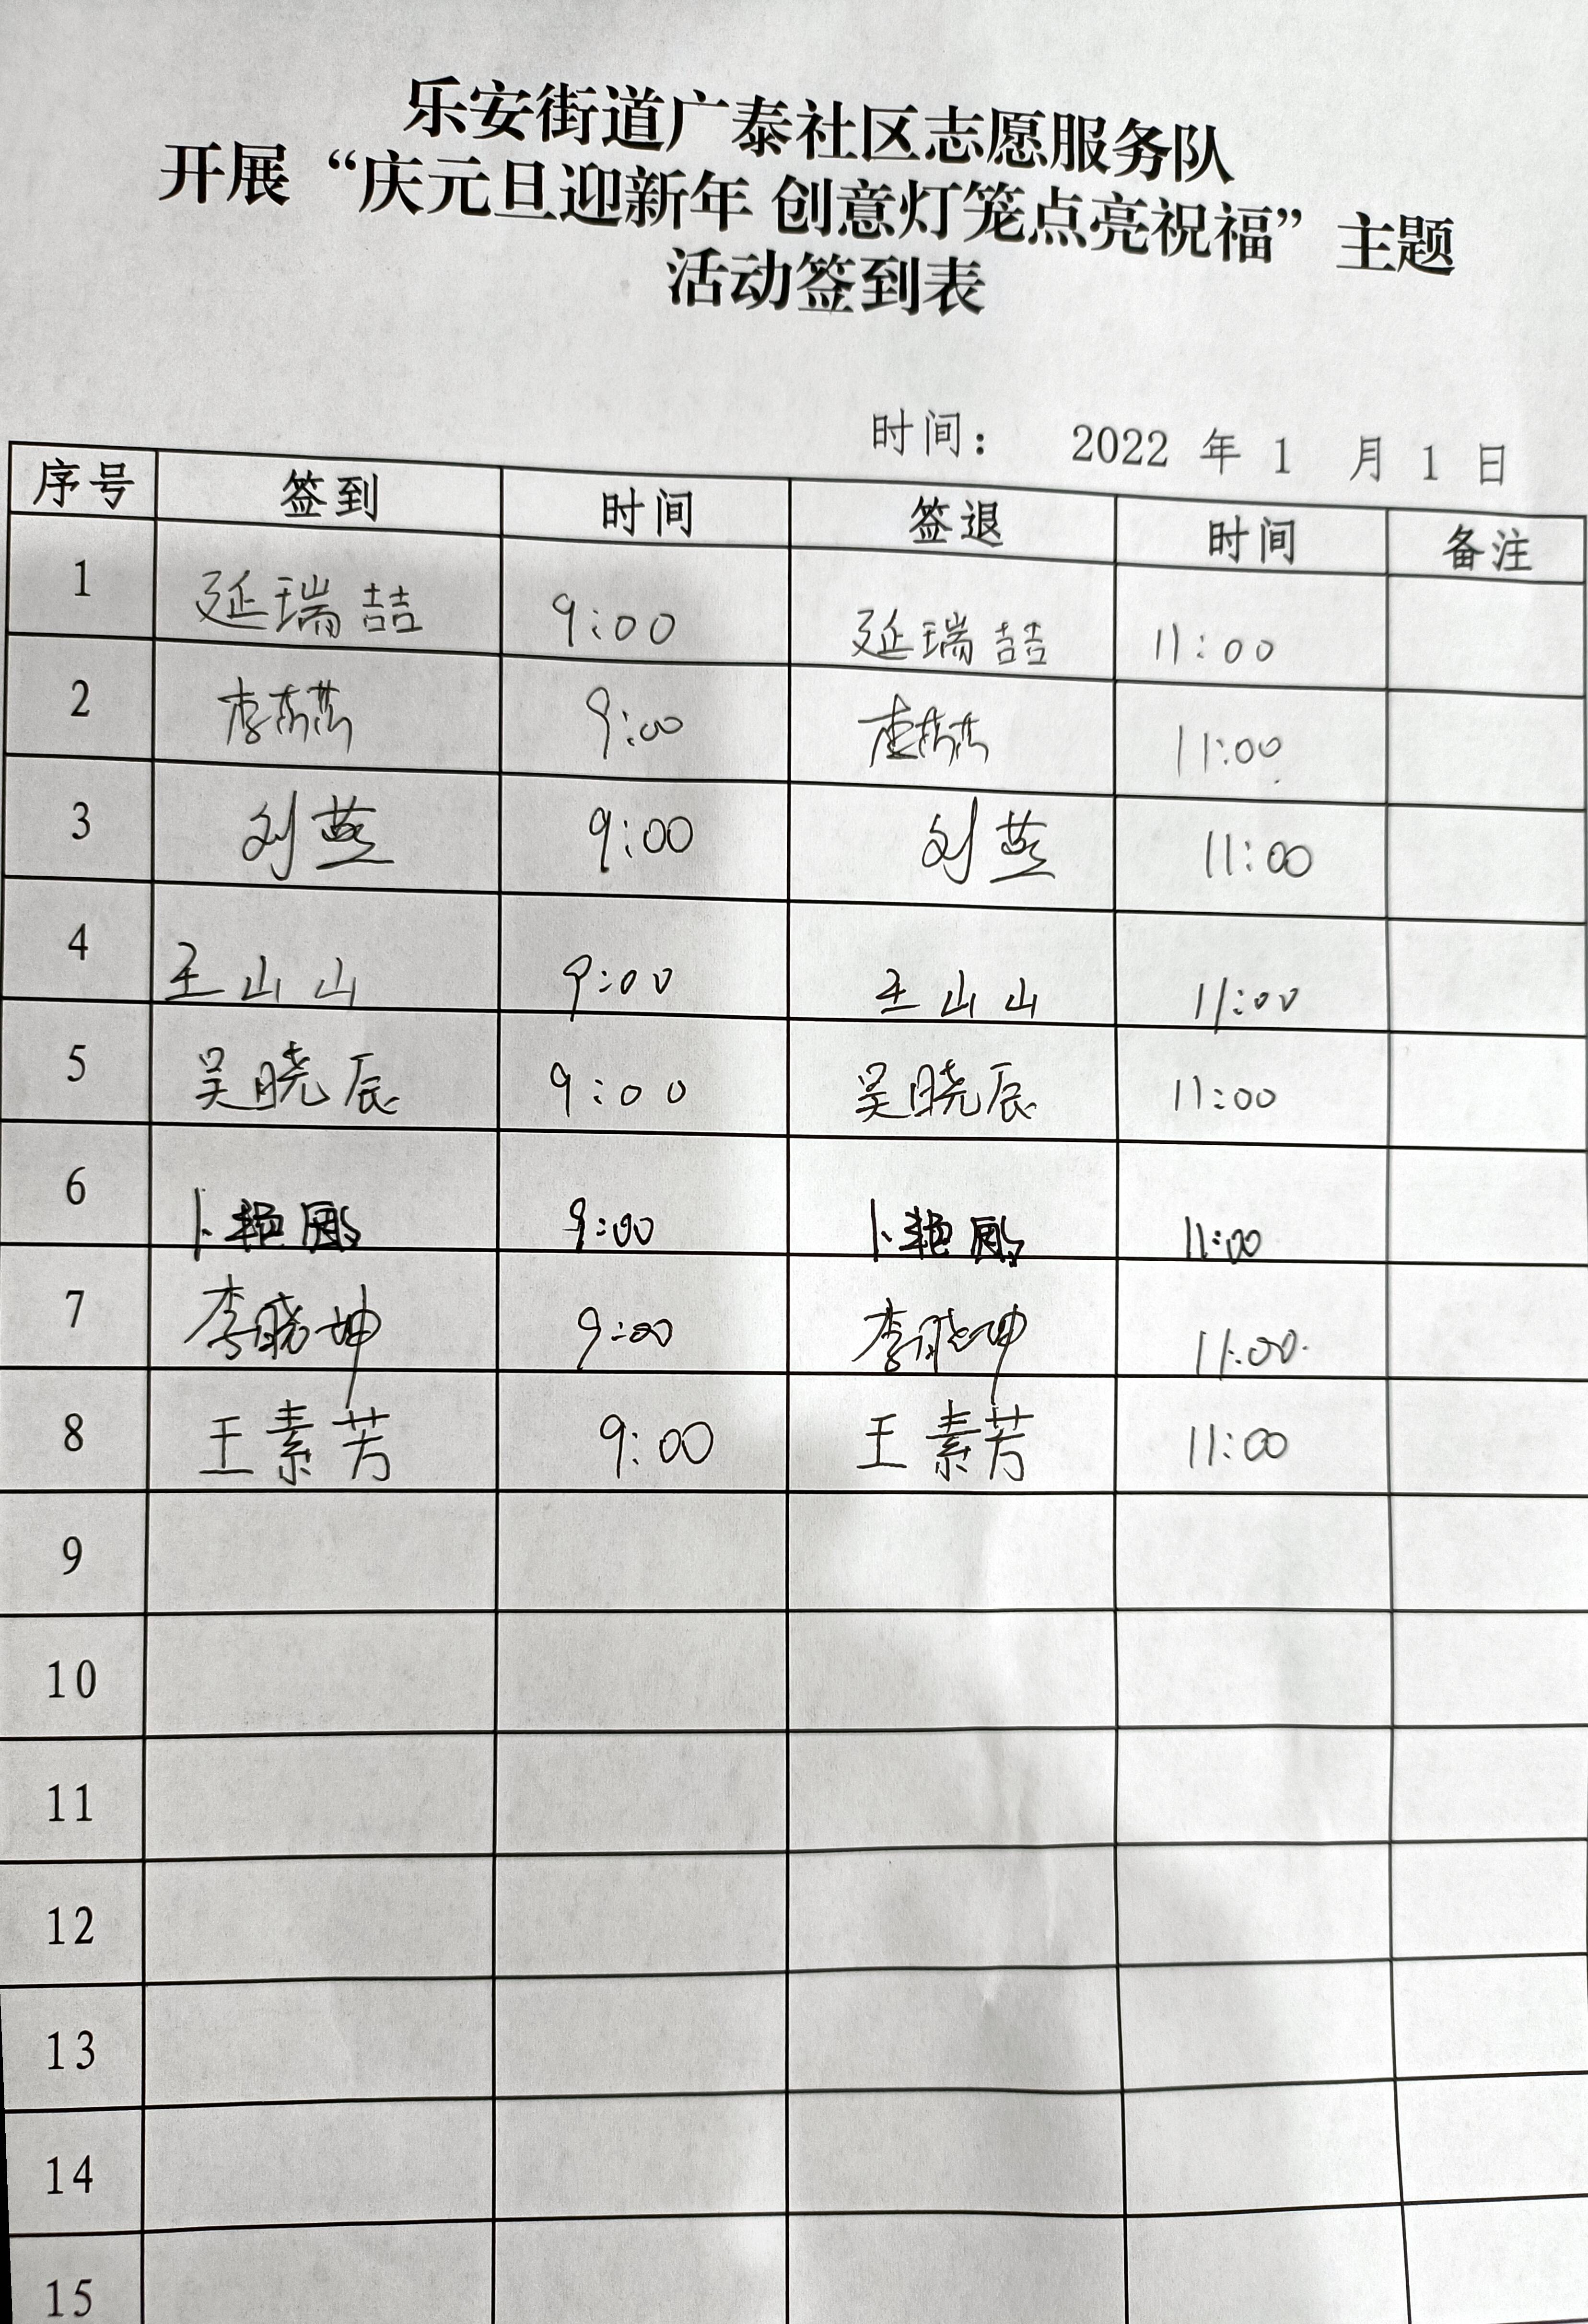 乐安街道广泰社区志愿服务队
开展“庆元旦迎新年 创意灯笼点亮祝福”主题
活动签到表
时间： 2022 年 1 月 1 日
序号 签到 时间 签退 时间 备注
1 延瑞喆 9:00 延瑞喆 11:00
2 李 9:00 李 11:00
3 刘燕 9:00 刘燕 11:00
4 王山山 9:00 王山山 11:00
5 吴晓辰 9:00 吴晓辰 11:00
6 卜艳 9:00 卜艳 11:00
7 李晓坤 9:00 李晓坤 11:00
8 王素芳 9:00 王素芳 11:00
9
10
11
12
13
14
15